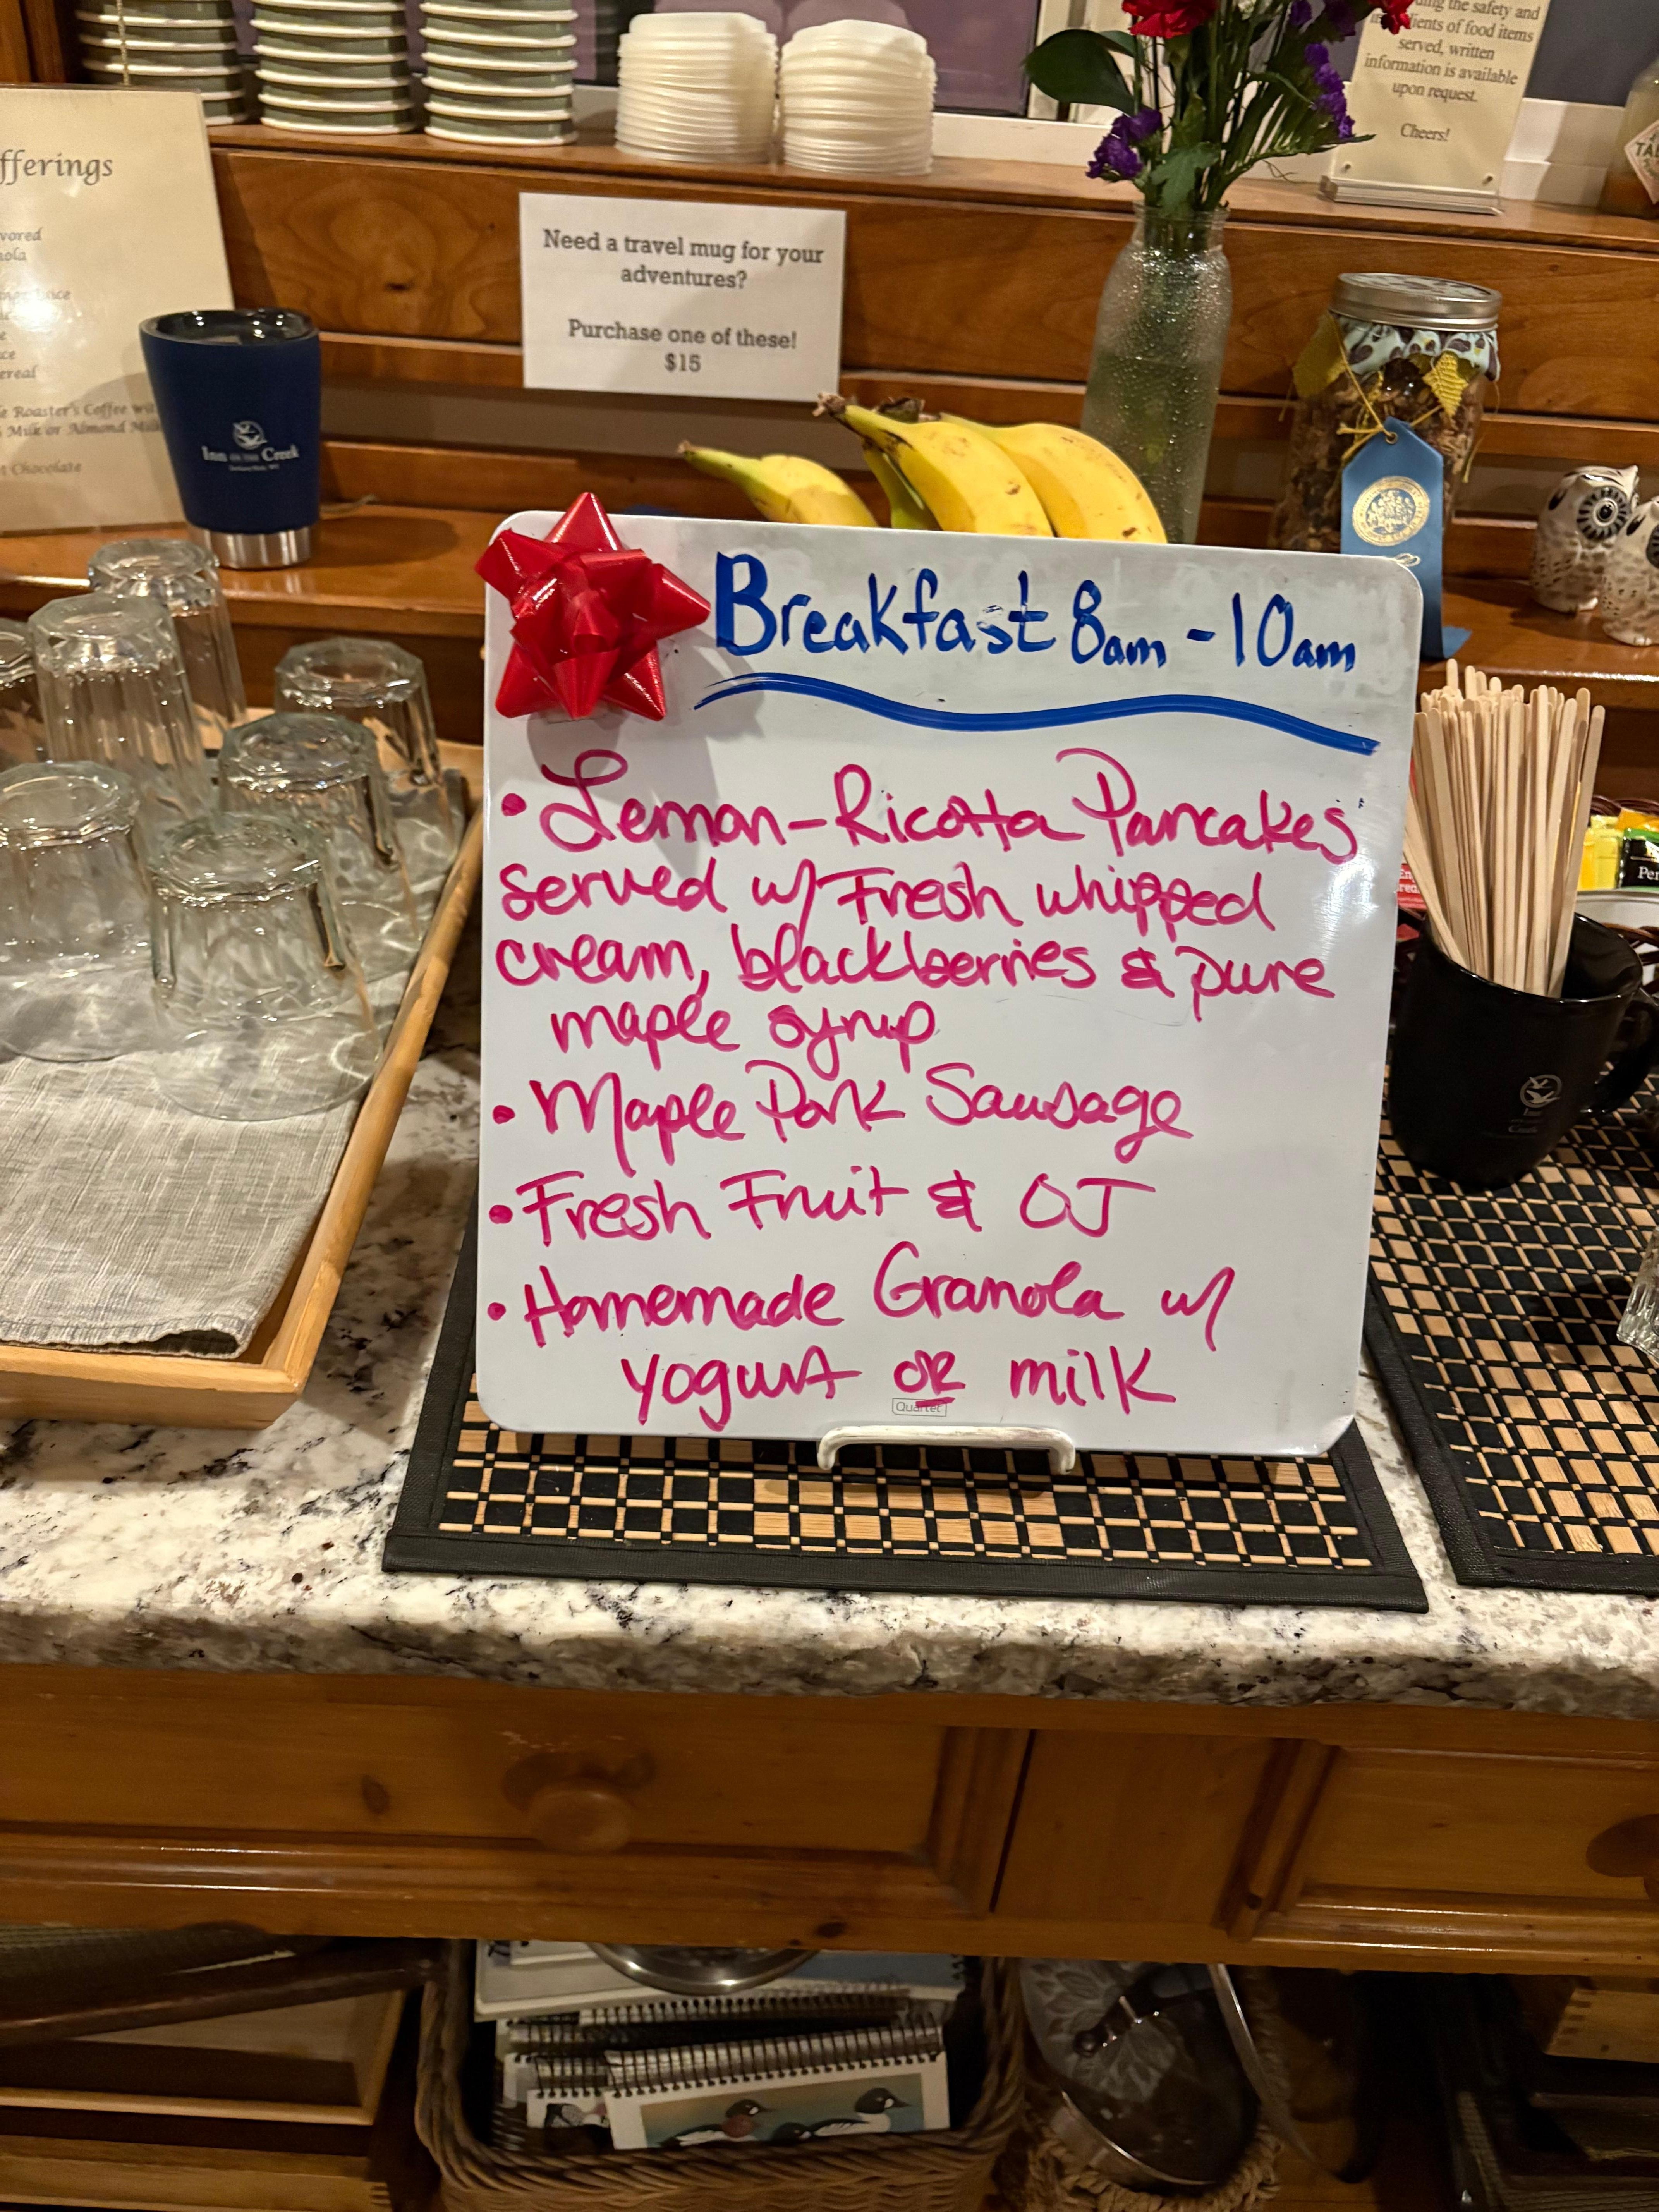 fferings
vored
ce
ereal
Roaster's Coffee wit
Milk or Almond Milk
Chocolate
Inn ON THE Creek
Need a travel mug for your
adventures?
Purchase one of these!
$15
the safety and
of food items
served, written
information is available
upon request.
Cheers!
Breakfast 8am - 10am
• Lemon-Ricotta Pancakes
served w/ Fresh whipped
cream, blackberries & pure
maple syrup
• Maple Pork Sausage
• Fresh Fruit & OJ
• Homemade Granola w/
yogurt or milk
Quartet